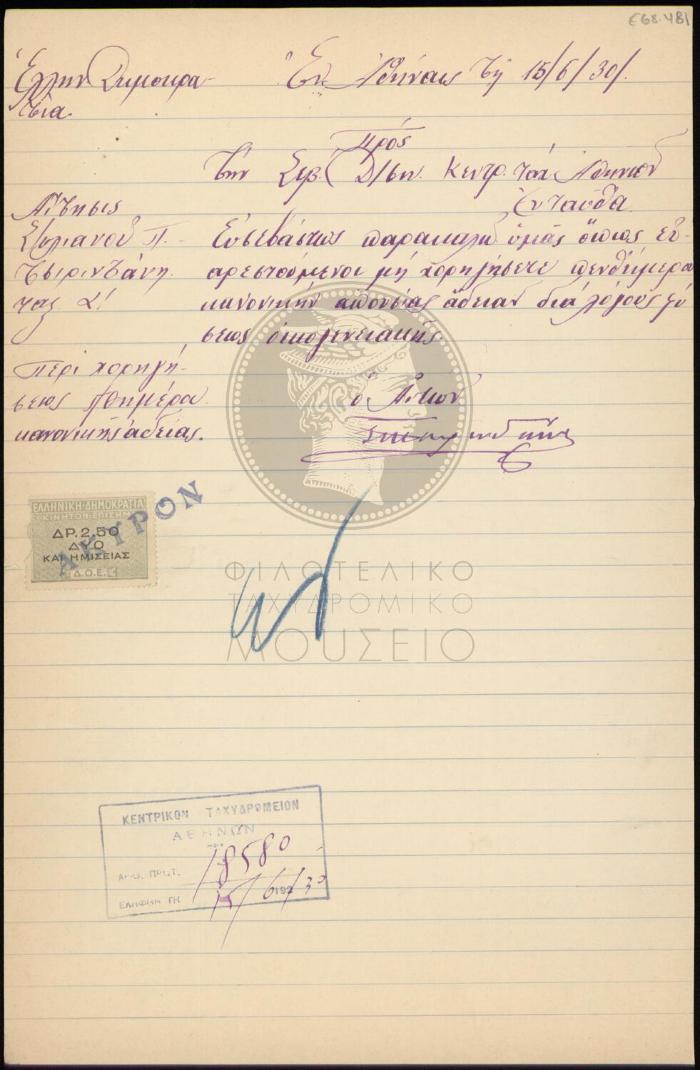 Ε68.481
Ἑλλην Δημοκρα-
τία.
Ἐν Ἀθήναις τῇ 15/6/30/.
Πρὸς
τὴν Σεβ. Δ/σιν Κεντρ. Ταχ. Ἀθηνῶν
Ἐνταῦθα
Αἴτησις
Στυλιανοῦ Π.
Τσιριντάνη
ταχ. Δ'
Περὶ χορηγή-
σεως πθημέρο
κανονικῆς ἀδείας.
Εὐσεβάστως παρακαλῶ ὑμᾶς ὅπως εὐ-
αρεστούμενοι μὴ χορηγήσετε πενθήμερο
κανονικὴν ἀπουσίας ἄδειαν διὰ λόγους φύ
σεως οἰκογενειακῆς
ὁ Αἰτῶν
ΕΛΛΗΝΙΚΗ ΔΗΜΟΚΡΑΤΙΑ
ΚΙΝΗΤΟΝ ΕΠΙΣΗΜΑ
ΔΡ. 2,50
ΔΥΟ
ΚΑΙ ΗΜΙΣΕΙΑΣ
Δ.Ο.Ε.
ΑΚΥΡΟΝ
ΦΙΛΟΤΕΛΙΚΟ
ΤΑΧΥΔΡΟΜΙΚΟ
ΜΟΥΣΕΙΟ
ΚΕΝΤΡΙΚΟΝ ΤΑΧΥΔΡΟΜΕΙΟΝ
ΑΘΗΝΩΝ
ΑΡΙΘ. ΠΡΩΤ. 18580
ΕΛΗΦΘΗ ΤΗ 15/6/192 30